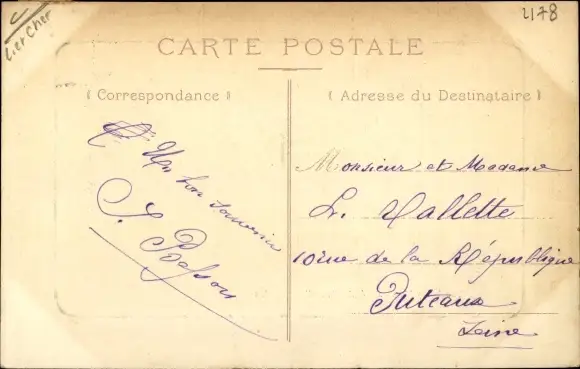 Cier Cher
2178
CARTE POSTALE
( Correspondance )
( Adresse du Destinataire )
Un bon souvenir
Monsieur et Madame
L. Vallette
10 rue de la République
Puteaux
Seine